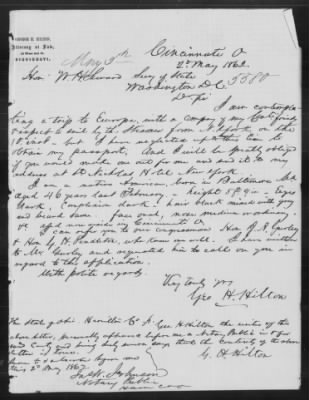 GEORGE H. HILTON,
Attorney at Law,
CINCINNATI.
Cincinnati O
2d May 1862.
Hon: W. H. Seward Secy of State
Washington D.C. 5580
Dr Sir
I am contempla-
ting a trip to Europe, with a company of my
& expect to sail by the Steamer from N York, on the
inst. but I have neglected up to this time to
obtain my passport, and I will be greatly obliged
if you would make one out for me and send it to my
address at St Nicholas Hotel New York.
I am a native American, born in Baltimore Md
aged 46 years last February. Height 5 ft 9 in - Eyes
dark, Complexion dark. hair black mixed with grey
and beard same. face oval, nose medium
I can refer you to our Congressman Hon J. A. Gurley
& Hon G. H. Pendleton, who know me well. I have written
to Mr Gurley and requested him to call on you in
regard to this application.
With polite regards.
Very truly yrs
Geo H. Hilton
The State of Ohio. Hamilton Co. Geo H Hilton the writer of the
above letter, personally appeared before me a Notary Public in & for
said County and being duly sworn says that the contents of the above
letter is true.
G. H. Hilton
Sworn to & subscribed before me
this 2d May 1862
Johnson
Notary Public
Ham Co O